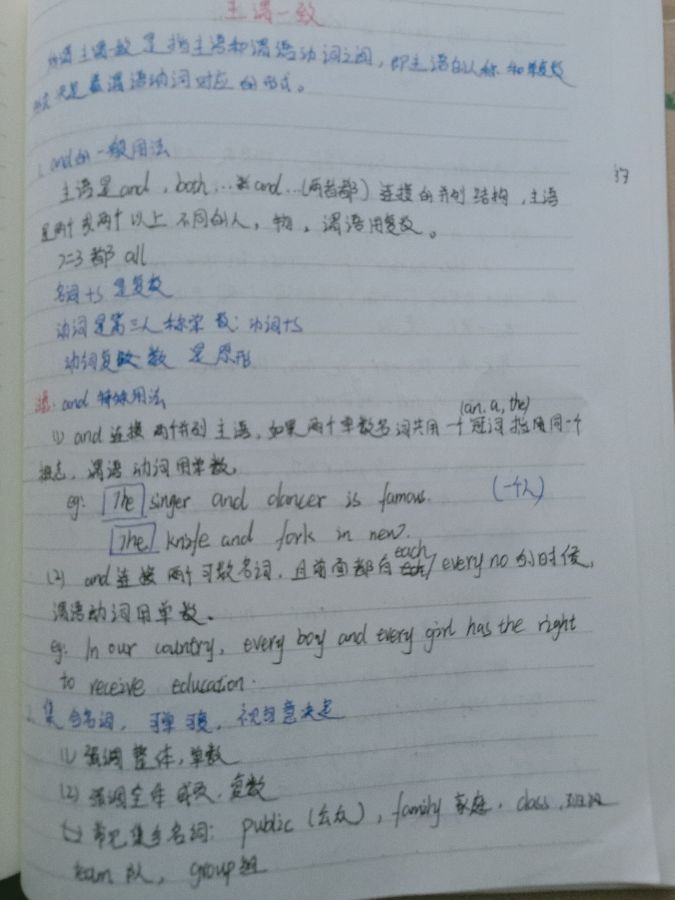 主谓一致
所谓主谓一致是指主语和谓语动词之间,即主语的人称和单复数
形式决定着谓语动词对应的形式。
1. and的一般用法
主语是and,both...and...(两者都)连接的并列结构,主语
是两个或两个以上不同的人,物。谓语用复数。
>=3 都 all
名词+s 是复数
动词是第三人称单数:动词+s
动词复数 是原形
注:and 特殊用法
(an, a, the)
(1) and 连接两个并列主语,如果两个单数名词共用一个冠词指同一个
概念,谓语动词用单数。
eg: The singer and dancer is famous. (一个人)
The knife and fork in new.
(2) and连接两个可数名词,且前面都有each/every no 的时候,
谓语动词用单数。
eg: In our country, every boy and every girl has the right
to receive education.
2. 集合名词,可单可复,视句意决定
(1) 强调整体,单数
(2) 强调全体成员,复数
常见集合名词: public (公众), family 家庭, class, 班级
team 队, group组
37